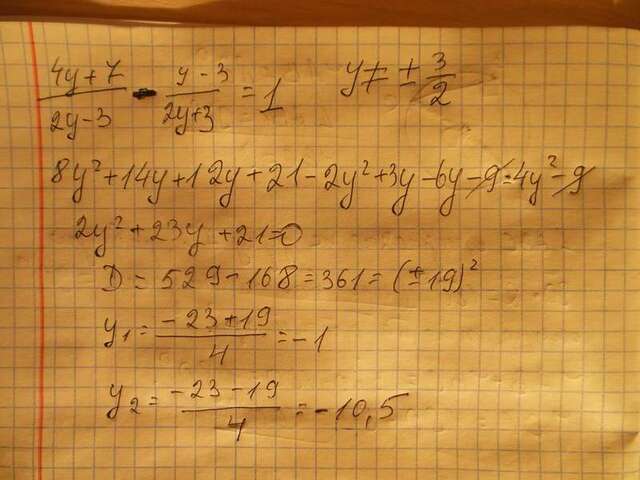 (4y+7)/(2y-3) - (y-3)/(2y+3) = 1 y ≠ ± 3/2
8y²+14y+12y+21-2y²+3y-6y-9=4y²-9
2y²+23y+21=0
D = 529-168=361=(±19)²
y₁ = (-23+19)/4 = -1
y₂ = (-23-19)/4 = -10,5